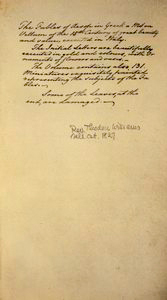 The Fables of Aesop in Greek a MS. on
Vellum of the 15th Century of great beauty
and value executed in Italy.
The Initial Letters are beautifully
executed in gold and colours, with Or-
naments of flowers and
The Volume contains also, 131
Miniatures exquisitely painted
representing the subjects of the Fa-
bles.
Some of the Leaves, at the
end, are damaged.
Rev. Theodore Williams
sale cat. 1827